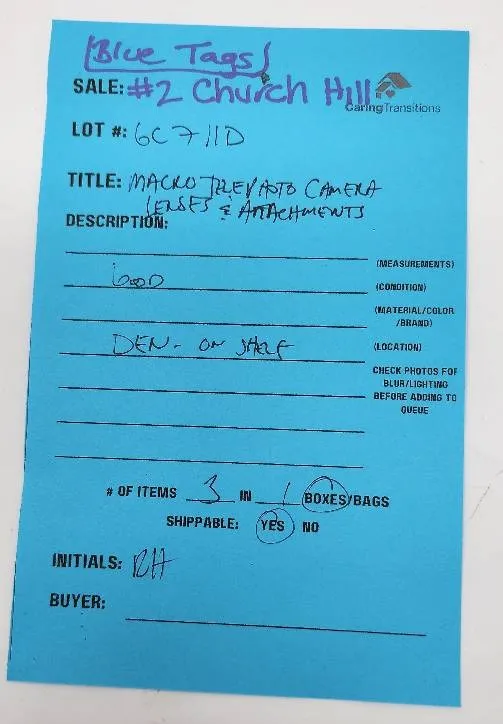 (Blue Tags)
SALE: #2 Church Hill
CaringTransitions
LOT #: 6C711D
TITLE: MACRO TELE/AUTO CAMERA
LENSES & ATTACHMENTS
DESCRIPTION:
(MEASUREMENTS)
GOOD (CONDITION)
(MATERIAL/COLOR
/BRAND)
DEN - ON SHELF (LOCATION)
CHECK PHOTOS FOR
BLUR/LIGHTING
BEFORE ADDING TO
QUEUE
# OF ITEMS 3 IN 1 BOXES/BAGS
SHIPPABLE: YES NO
INITIALS: RH
BUYER: